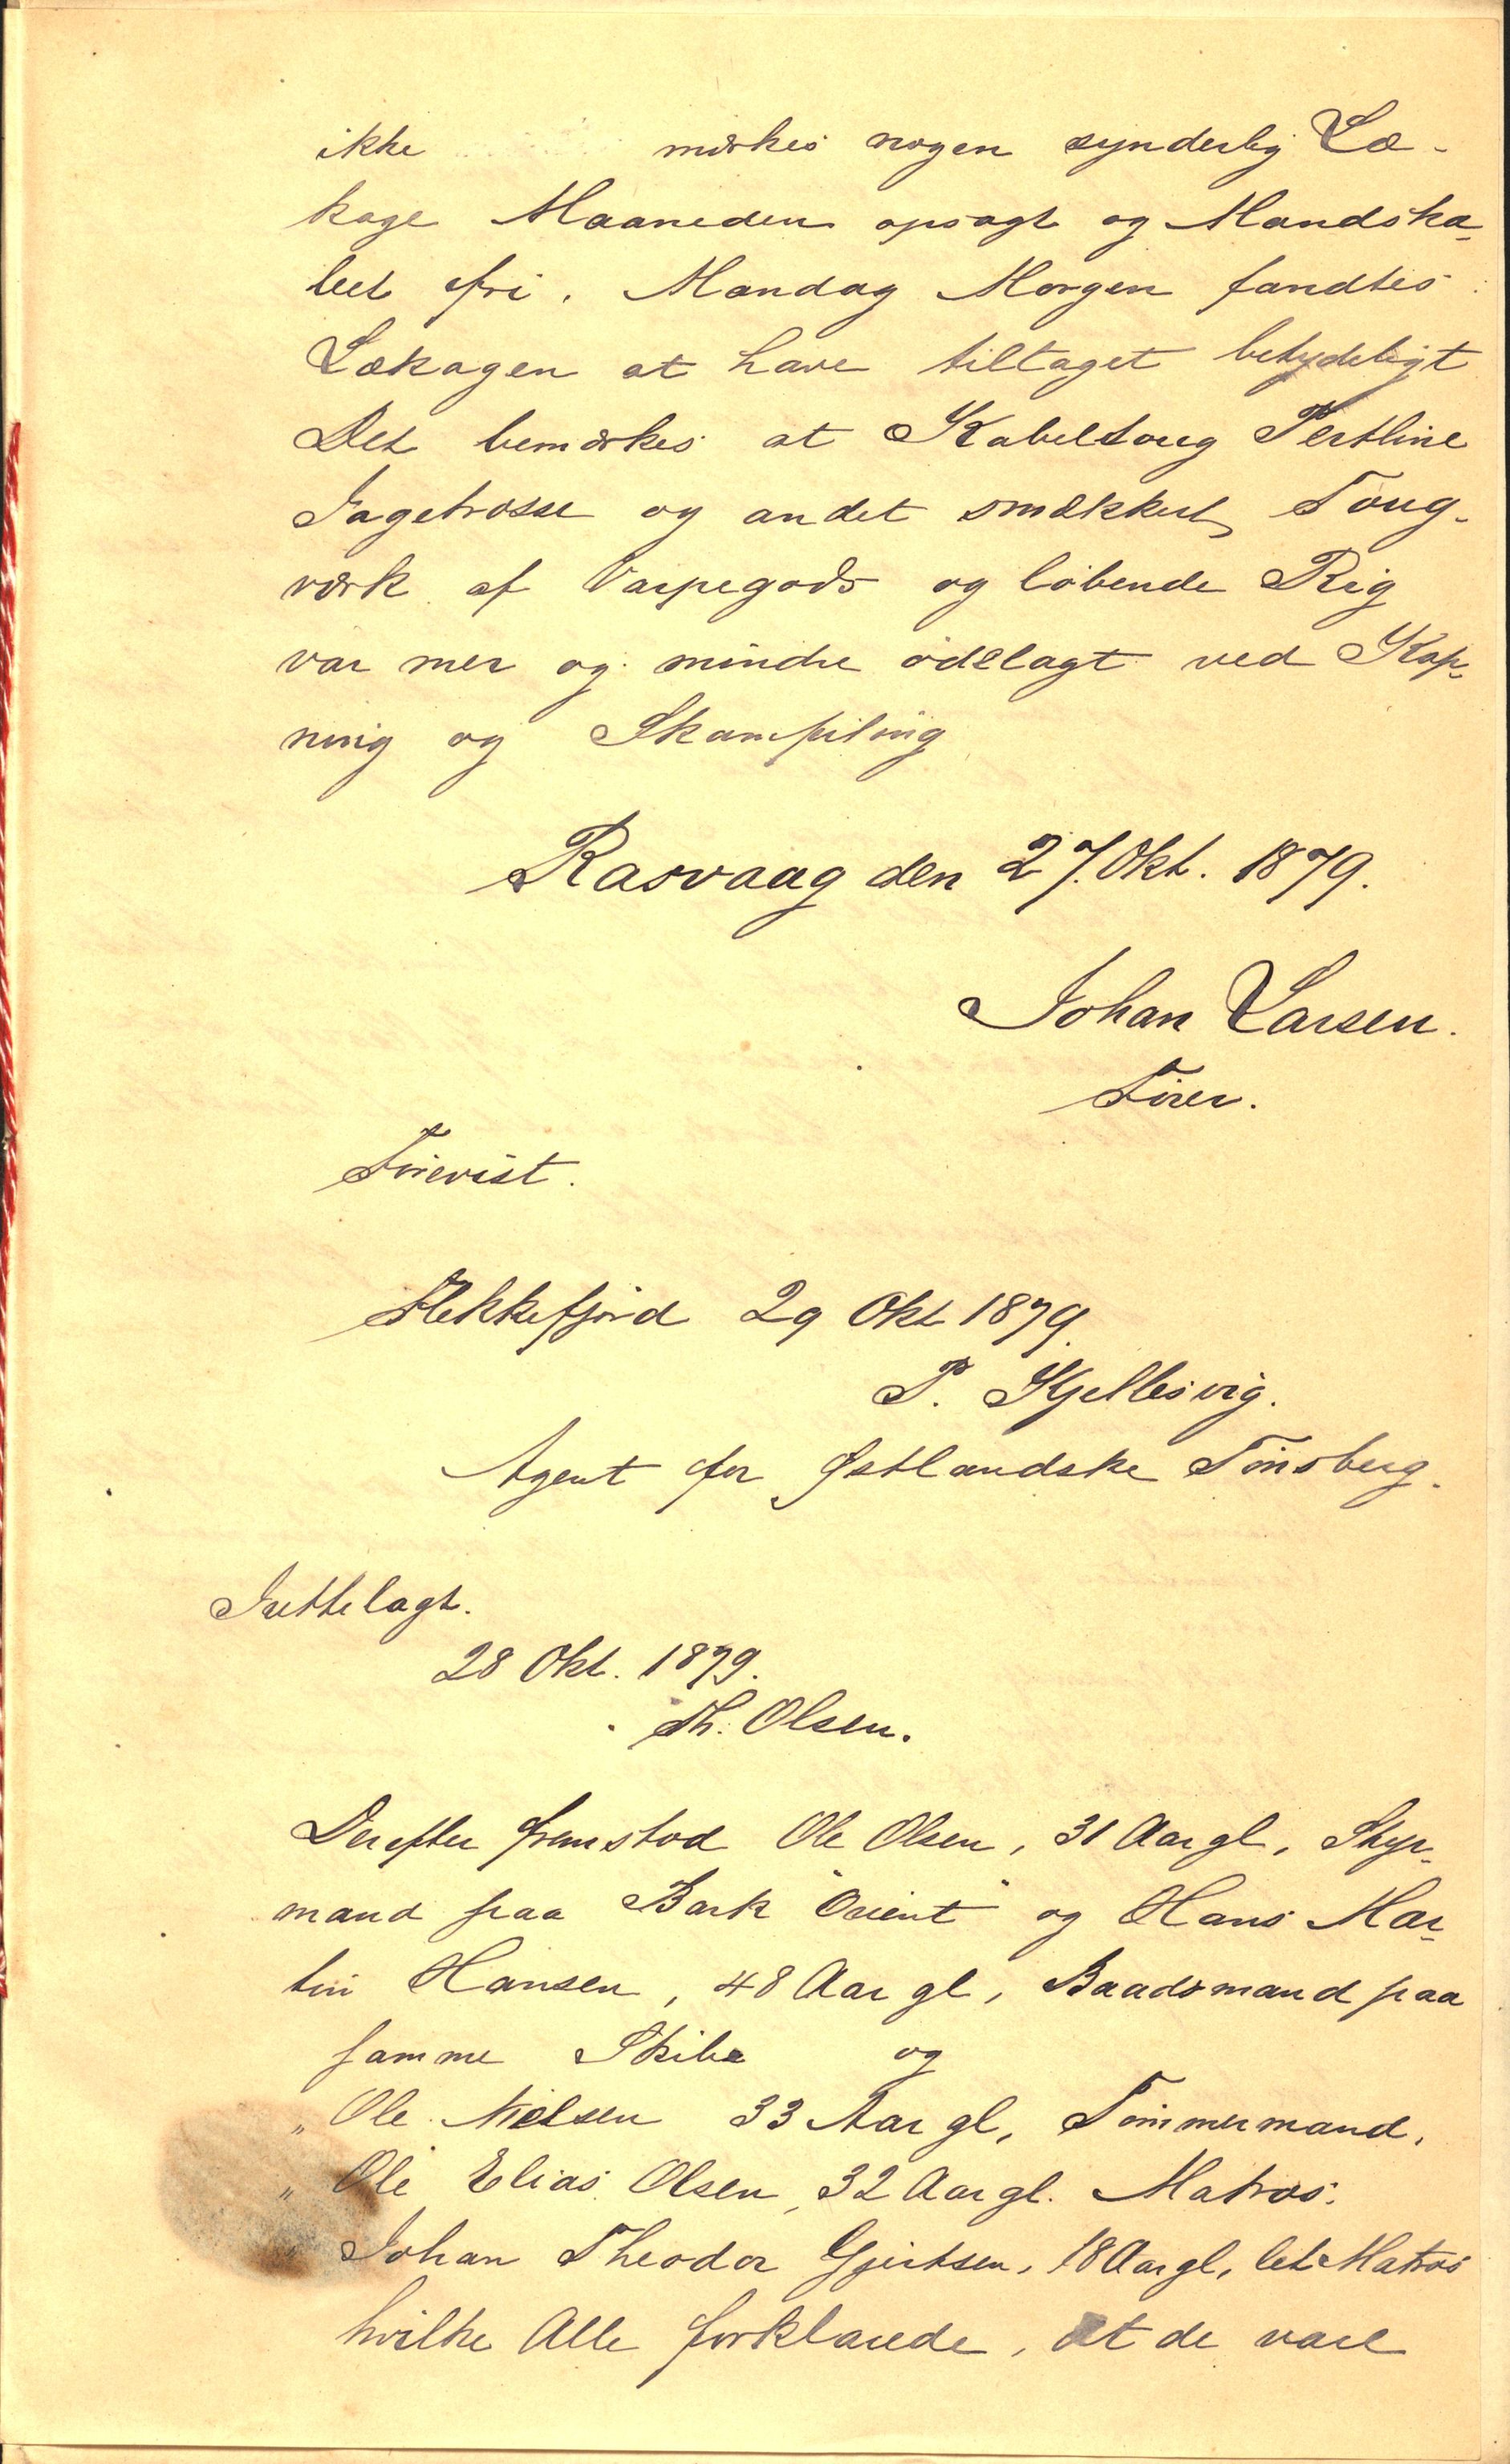 ikke mærkes nogen synderlig Læ-
kage Maaneden opsagt og Mandska-
bet fri. Mandag Morgen fandtes
Lækagen at have tiltaget betydeligt
Det bemærkes at Kabeltoug Pertline
Jagetrosse og andet smekkert Toug-
værk af Varpegods og løbende Rig
var mer og mindre ødelagt ved Kap-
ning og Skamfiling
Rasvaag den 27. Okt. 1879.
Johan Larsen.
Fører.
Forevist.
Flekkefjord 29 Okt 1879.
P. Kjellesvig.
Agent for Østlandske Tønsberg.
Irettelagt.
28 Okt. 1879.
Th. Olsen.
Derefter fremstod Ole Olsen, 31 Aar gl, Styr-
mand paa Bark "Orient" og Hans Mar-
tin Hansen, 48 Aar gl, Baadsmand paa
samme Skibe og
" Ole Nielsen 33 Aar gl, Tømmermand,
" Ole Elias Olsen, 32 Aar gl. Matros.
" Johan Theodor Gjertsen, 18 Aar gl, let Matros
hvilke Alle forklarede, at de vare